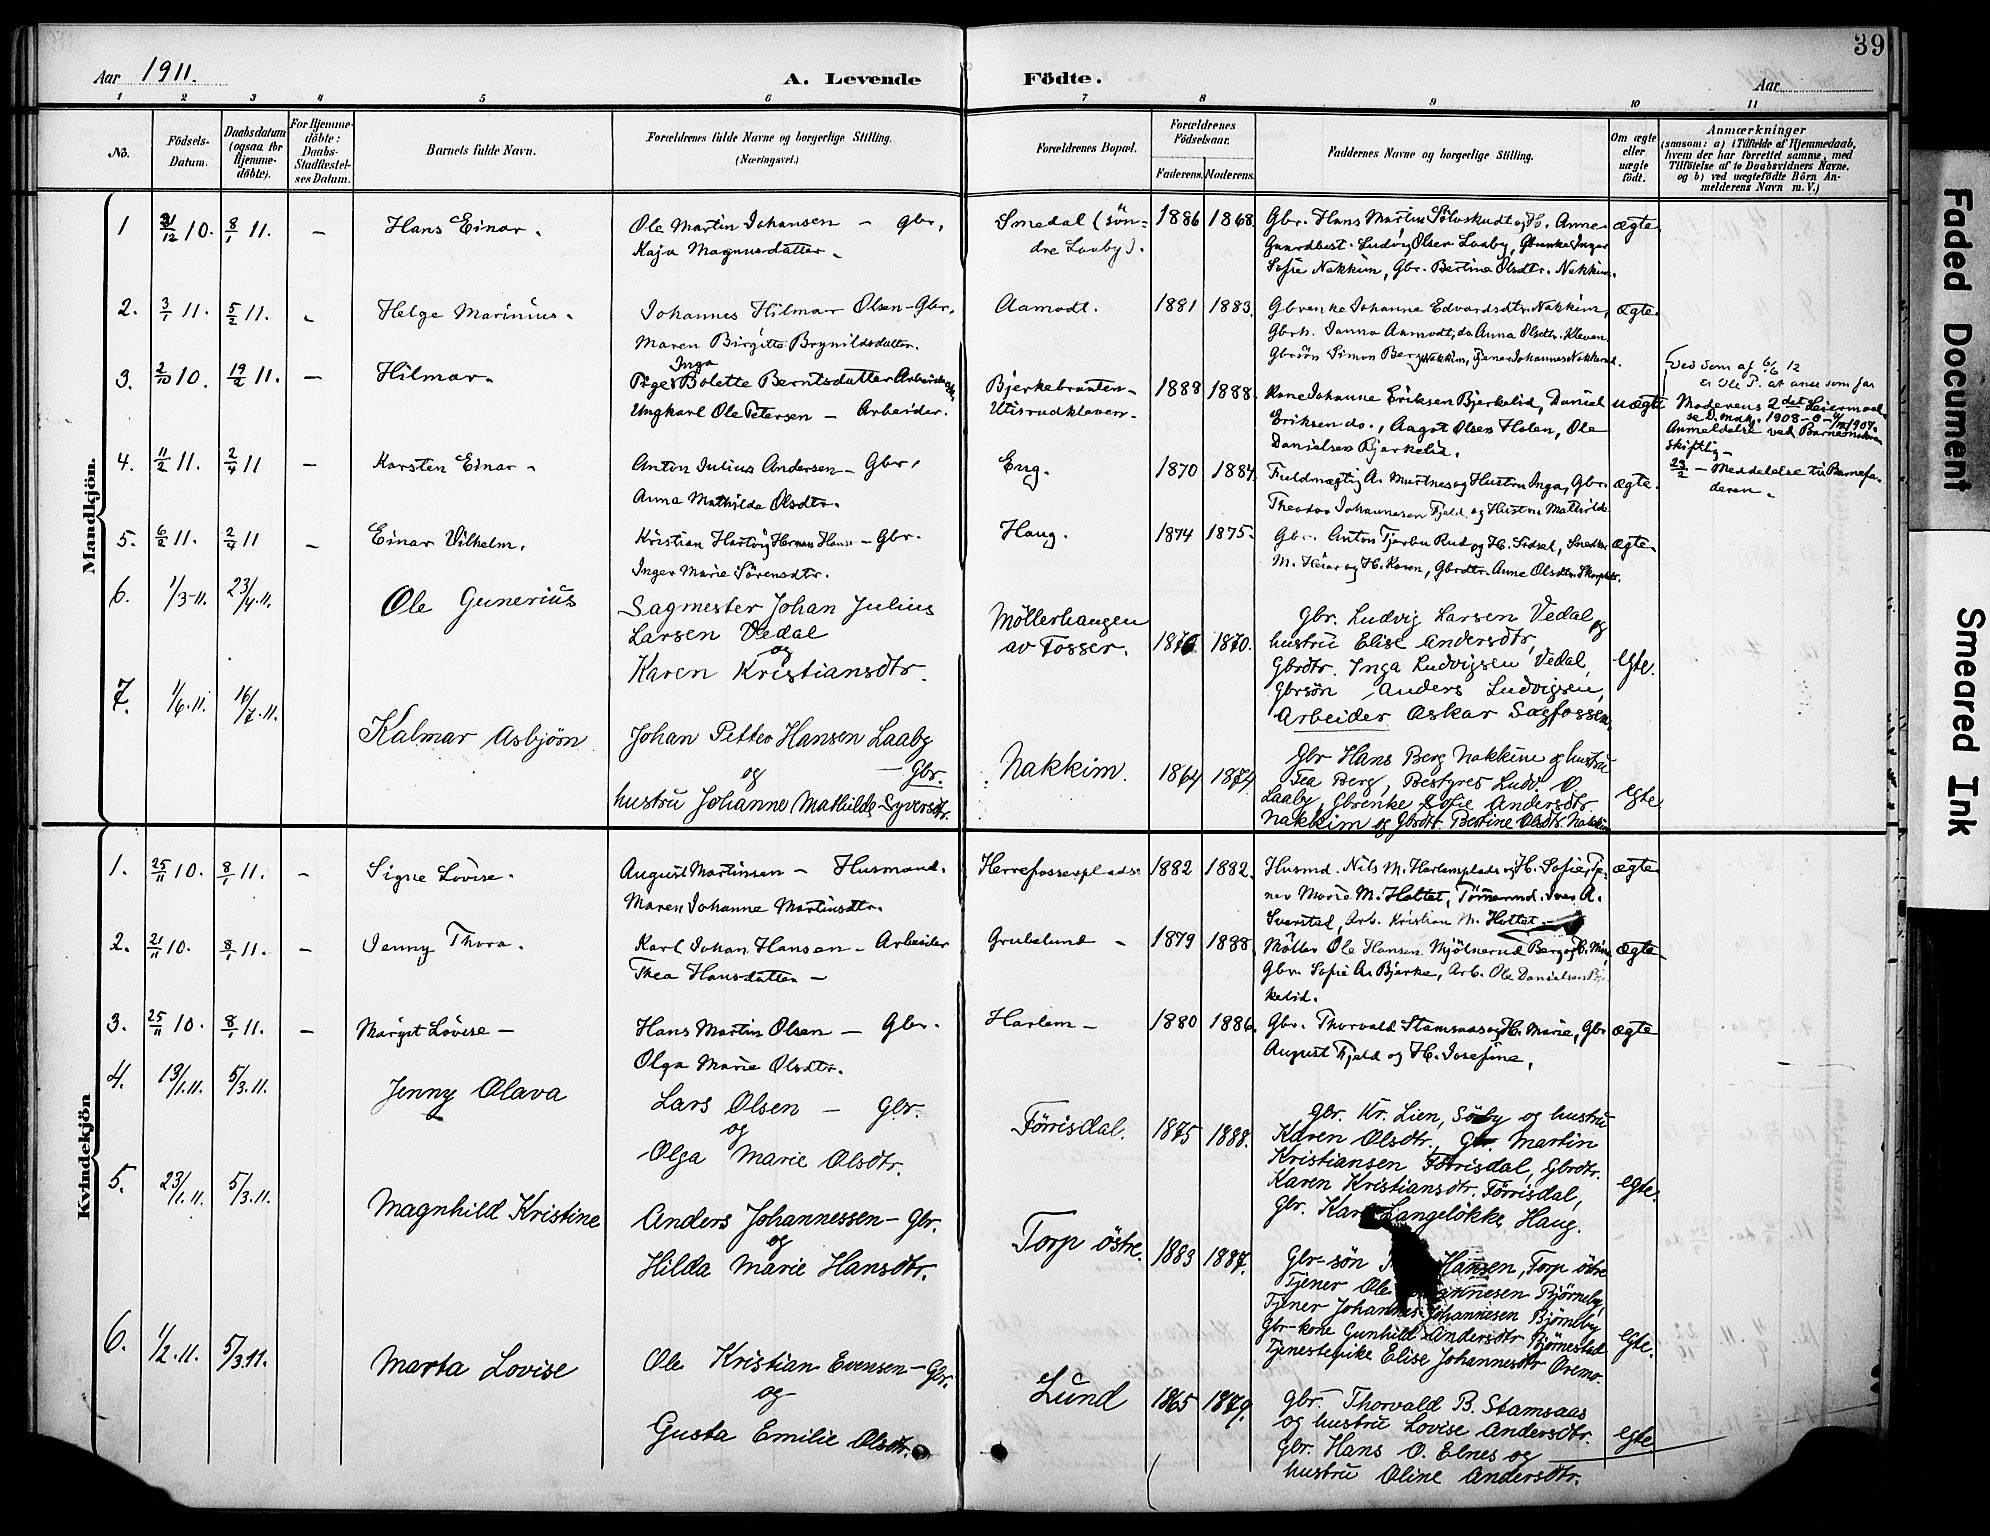 39
Aar 1911.
A. Levende Födte.
Aar
1 2 3 4 5 6 7 8 9 10 11
No.
Födsels-Datum.
Daabsdatum (ogsaa for Hjemme-döbte).
For Hjemme-döbte: Daabs-Stadfæstel-ses Datum.
Barnets fulde Navn.
Forældrenes fulde Navne og borgerlige Stilling. (Næringsvei.)
Forældrenes Bopæl.
Forældrenes Födselsaar.
Faderens. Moderens.
Faddernes Navne og borgerlige Stilling.
Om ægte eller uægte födt.
Anmærkninger
(saasom: a) i Tilfælde af Hjemmedaab, hvem der har forrettet samme, med Tilföielse af to Daabsvidners Navne. og b) ved uægtefödte Börn An-melderens Navn m. V.)
Mandkjön.
1 31/12 10. 8/1 11. – Hans Einar.
Ole Martin Johansen – Gbr.
Kaja Magnusdatter.
Smedal (søn-
dre Laaby).
1886 1868.
Gbr. Hans Martin Sølvskudt og H. Anne
Gaardbest. Ludvig Olsen Laaby, Gbrenke Inger
Sofie Nakkim, Gbr. Bertine Olsdtr. Nakkim.
ægte.
2. 3/1 11. 5/2 11. Helge Marinius.
Johannes Hilmar Olsen – Gbr.
Maren Birgitte Brynildsdatter.
Aamodt.
1881 1883.
Gbrenke Johanne Edvardsdtr. Nakkim,
Gbrk. Janna Aamodt, do Anna Olsdtr. Kleven
Gbrsøn Simon Berg Nakkim, Tjener Johannes Nakkerud.
ægte.
3. 2/10 10. 19/2 11. – Hilmar.
Inga
Pige Bolette Berntsdatter Arbeiderske
Ungkarl Ole Petersen – Arbeider.
Bjerkebraaten –
Utisrudkleven –
1888 1888.
Kone Johanne Eriksen Bjerkelid, Daniel
Eriksen do., Aagot Olsen Holen, Ole
Danielsen Bjerkelid.
uægte
Ved Dom af 6/6 12
er Ole P. at anse som far
Moderens 2det Leiermaal
Anmeldelse ved Barnemoderen
skiftlig –
23/2 – Meddelelse til Barnefa-
deren.
4. 11/2 11. 2/4 11 – Karsten Einar –
Anton Julius Andersen – Gbr.
Anna Mathilde Olsdtr.
Eng.
1870 1884.
Fuldmægtig A. Murtnes og Hustru Inga, Gbr.
Theodor Johannesen Fjeld og Hustru Mathilde
ægte.
5. 6/2 11. 2/4 11 – Einar Vilhelm.
Kristian Hartvig Herman Hansen – Gbr.
Inger Marie Sørensdtr.
Haug.
1874 1875.
Gbr. Anton Tjerbu Rud og H. Sidsel, Snedker
M. Heiar og H. Karen, Gbrdtr. Anne Olsdtr.
ægte.
6. 1/3-11. 23/4.11. Ole Gunerius
Sagmester Johan Julius
Larsen Vedal
og
Karen Kristiansdtr.
Möllerhaugen
av Fosser.
1876 1870.
Gbr. Ludvig Larsen Vedal og
hustru Elise Andersdtr,
Gbrdtr. Inga Ludvigsen Vedal,
Gbrsön Anders Ludvigsen,
Arbeider Oskar Sagfossen.
egte.
7. 1/6.11. 16/7.11. Kalmar Asbjörn
Johan Petter Hansen Laaby
og – Gbr.
hustru Johanne Mathilde Syversdtr.
Nakkim.
1864 1874.
Gbr Hans Berg Nakkim og hustru
Tea Berg, Bestyrer Ludv. O.
Laaby, Gbrenke Sofie Andersdtr
Nakkim og Gbrdtr. Bertine Olsdtr. Nakkim
egte
Kvindekjön
1. 25/11 10. 8/1 11. – Signe Lovise.
August Martinsen – Husmand.
Maren Johanne Martinsdtr.
Herrefosserplads.
1882 1882.
Husmd. Nils M. Harlemplads og H. Sofie, Tje-
ner Marie M. Holtet, Tømmermd. Iver A.
Svarstad, Arb. Kristian M. Holtet.
ægte
2. 21/11 10. 8/1 11. – Jenny Thora.
Karl Johan Hansen – Arbeider
Thea Hansdatter –
Grubelund –
1879 1888.
Møller Ole Hansen Mjølnerud Berg og H. Mina,
Gbr. Sofie A. Bjerke, Arb. Ole Danielsen Bjer-
kelid.
ægte
3. 25/11 10. 8/1 11. – Margit Lovise –
Hans Martin Olsen – Gbr.
Olga Marie Olsdtr.
Harlem –
1880 1886.
Gbr. Thorvald Stamsaas og H. Marie, Gbr
August Fjeld og H. Josefine.
ægte
4. 13/1.11. 5/3.11. Jenny Olava
Lars Olsen – Gbr.
og
Olga Marie Olsdtr.
Förrisdal.
1875 1888.
Gbr. Kr. Lien, Söby og hustru
Karen Olsdtr., Gbr. Martin
Kristiansen Förrisdal, Gbrdtr.
Karen Kristiansdtr. Förrisdal,
Gbr. Karl Langelökke, Haug.
egte.
5. 23/1.11. 5/3.11. Magnhild Kristine
Anders Johannessen – Gbr.
og
Hilda Marie Hansdtr.
Torp östre.
1883 1887.
Gbr-sön Hansen, Torp östre
Tjener Ole Bjørneby,
Tjener Johannes Johannesen Bjørneby
Gbr-kone Gunhild Andersdtr Bjørnestad
Tjenestepike Elise Johannesdtr Oremo.
egte.
6. 1/2.11. 5/3.11. Marta Lovise
Ole Kristian Evensen – Gbr.
og
Gusta Emilie Olsdtr.
Lund
1865 1879.
Gbr. Thorvald B. Stamsaas
og hustru Lovise Andersdtr.
Gbr. Hans O. Elnes og
hustru Oline Andersdtr.
egte
Faded Document
Smeared Ink